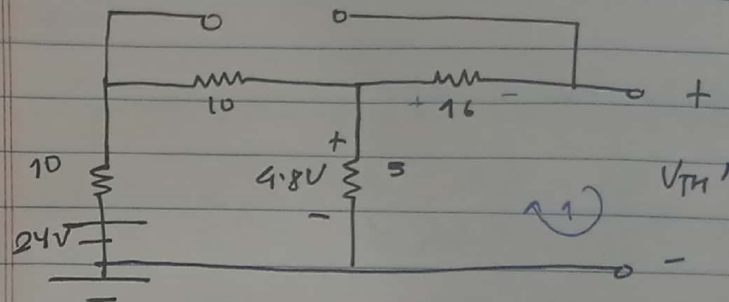 10
+ 16 -
+
+
10
4.8V
5
VTH'
-
1
24V
-